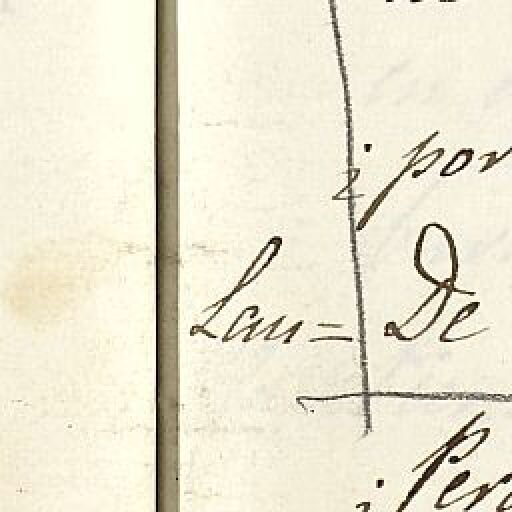 ¿por
Lau= De
¿Per